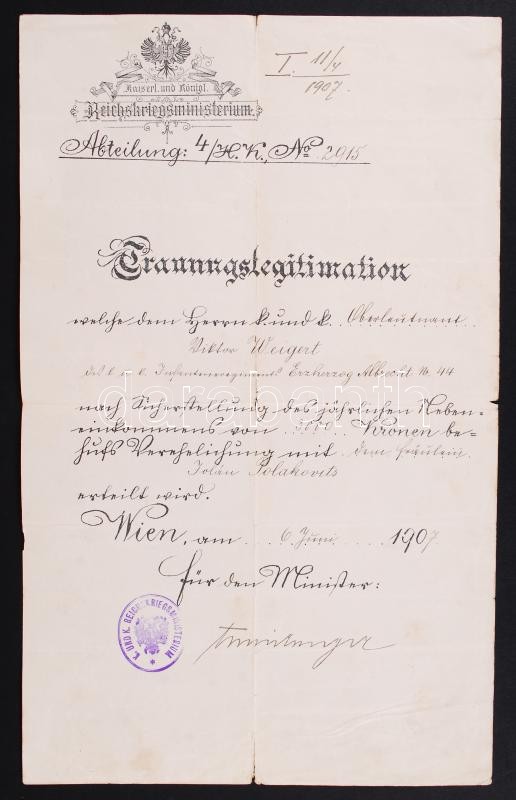 I. 11/4
1907.
Kaiserl. und Königl.
Reichskriegsministerium.
Abteilung: 4/H.K., No 2915
Trauungslegitimation
welche dem Herrn k. und k. Oberleutnant
Viktor Weigert
des k. u. k. Infanterieregiments Erzherzog Albrecht Nr. 44
nach Sicherstellung des jährlichen Neben-
einkommens von Kronen be-
hufs Verehelichung mit dem Fräulein
Jolan Polakovits
erteilt wird.
Wien, am 6. Juni 1907.
für den Minister:
K. UND K. REICHSKRIEGSMINISTERIUM
darabanth